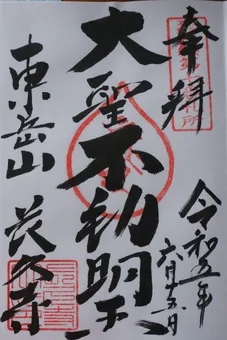 奉拝
令和五年
六月十五日
大聖不動明王
東岳山
長久寺